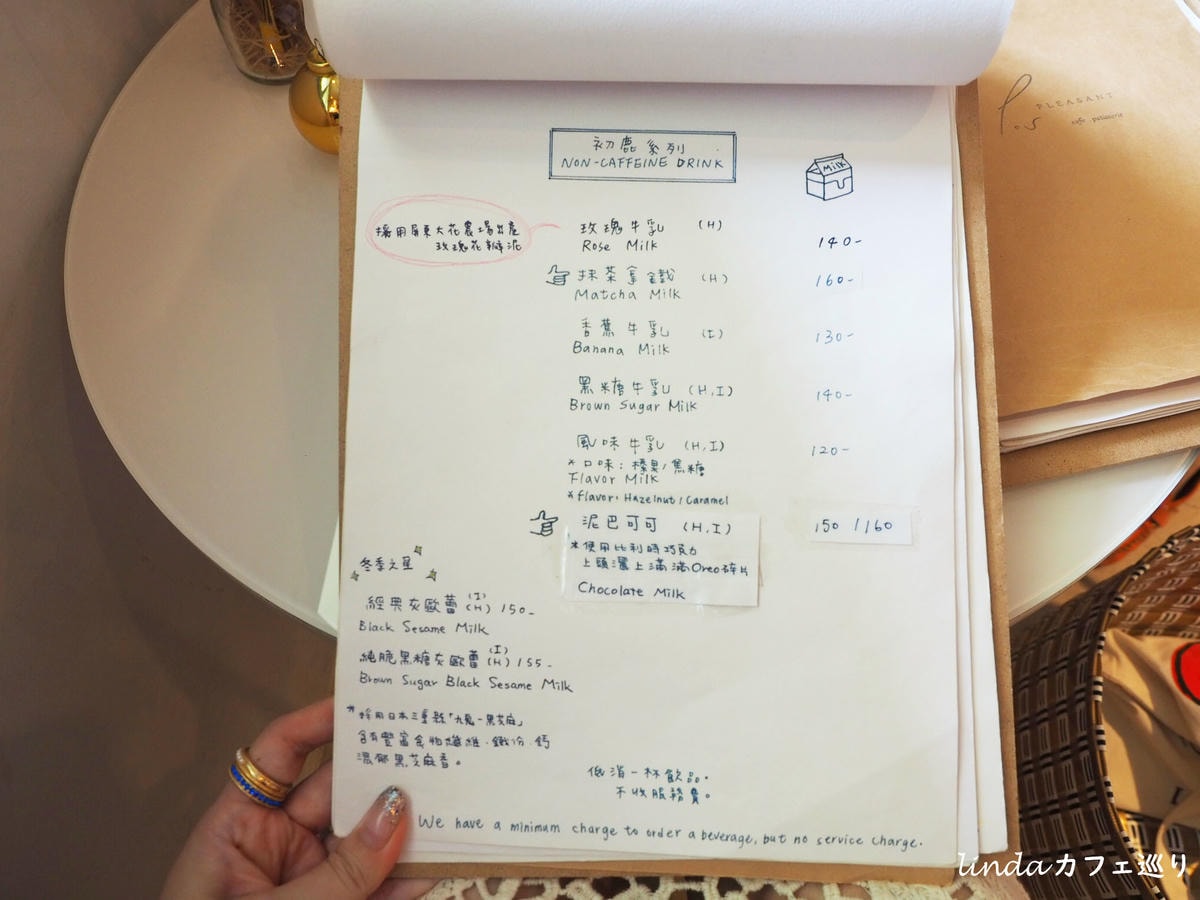 PLEASANT
cafe patisserie
初鹿系列
NON-CAFFEINE DRINK
MILK
採用屏東大花農場出產
玫瑰花瓣泥
玫瑰牛乳 (H)
Rose Milk
140-
抹茶拿鐵 (H)
Matcha Milk
160-
香蕉牛乳 (I)
Banana Milk
130-
黑糖牛乳 (H,I)
Brown Sugar Milk
140-
風味牛乳 (H,I)
*口味：榛果/焦糖
Flavor Milk
*Flavor: Hazelnut/Caramel
120-
泥巴可可 (H,I)
*使用比利時巧克力
上頭灑上滿滿Oreo碎片
Chocolate Milk
150 /160
冬季之星
經典灰歐蕾 (I) (H) 150-
Black Sesame Milk
純脆黑糖灰歐蕾 (I) (H) 155-
Brown Sugar Black Sesame Milk
*採用日本三重縣「九鬼-黑芝麻」
含有豐富食物纖維.鐵份.鈣
濃郁黑芝麻香。
低消一杯飲品.
不收服務費。
We have a minimum charge to order a beverage, but no service charge.
lindaカフェ巡り